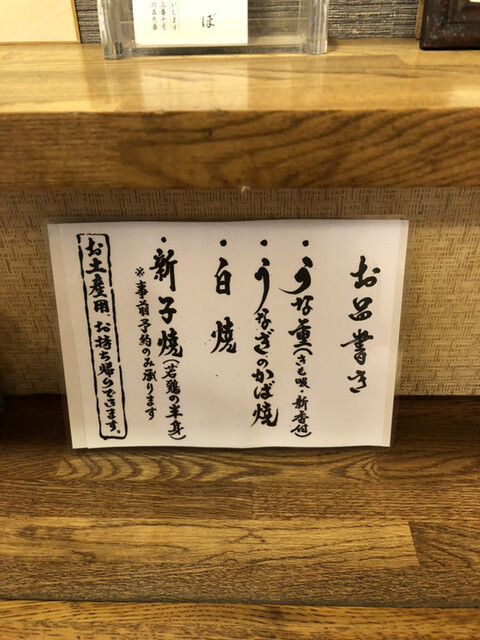 ぼ
いします
三番七号
お品書き
・うな重(きも吸・新香付)
・うなぎのかば焼
・白焼
・新子焼(若鶏の半身)
※事前予約のみ承ります
お土産用お持ち帰りできます。